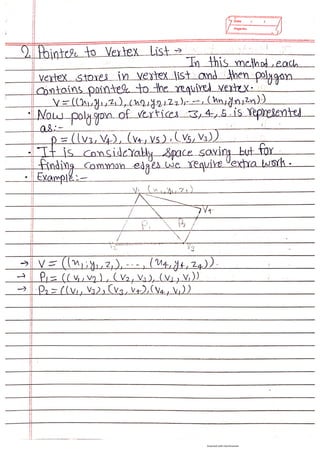 Date : :
Page No.
2. Pointer to Vertex List →
In this method, each
vertex stores in vertex list and then polygon
contains pointer to the required vertex.
V = ((x1,y1,z1), (x2,y2,z2), --, (xn,yn,zn))
• Now polygon of vertices 3, 4, 5 is represented
as:-
P = ((V3, V4), (V4, V5), (V5, V3))
• It is considerably space saving but for
finding common edges we require extra work.
• Example:-
V1 (x1,y1,z1)
V4
P1 P2
V2 V3
→ V = ((x1,y1,z1), ..., (x4,y4,z4)).
→ P1 = ((V1,V2), (V2,V3), (V3,V1))
→ P2 = ((V1,V3), (V3,V4), (V4,V1))
Scanned with CamScanner